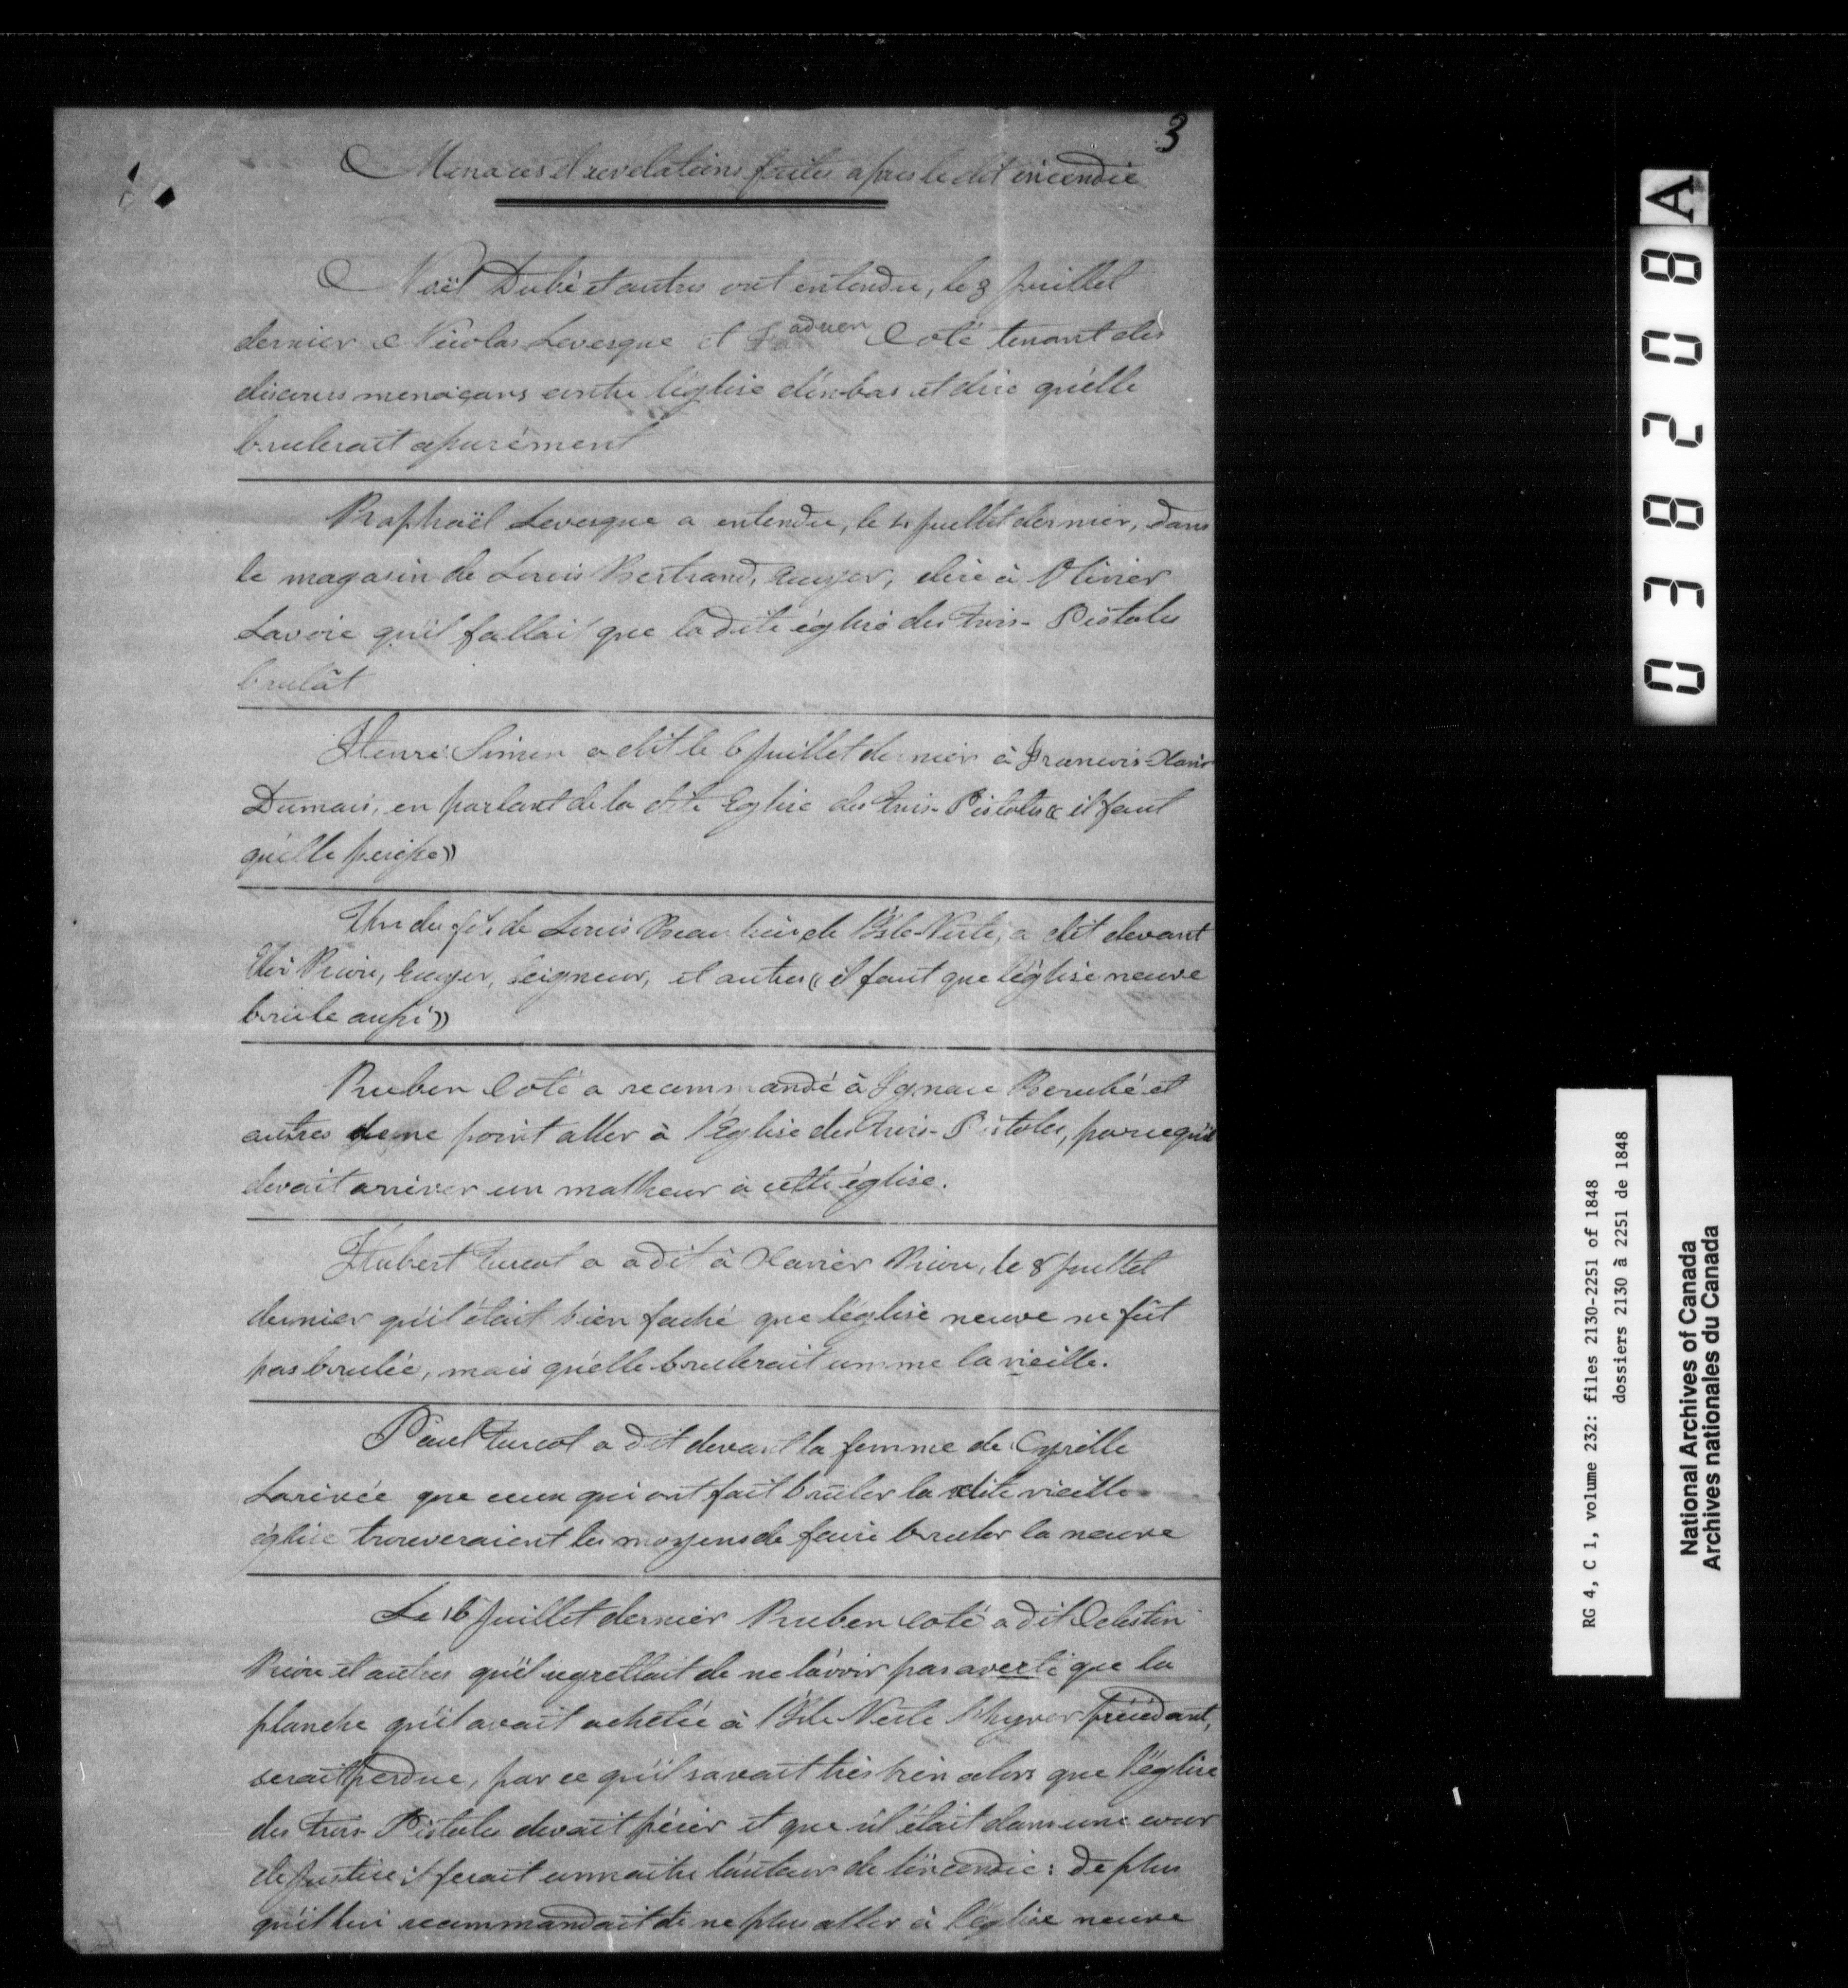 3
Menaces et revelations faites après le dit incendie
Noël Dubé et autres ont entendu, le 3 Juillet
dernier Nicolas Levesque et Coté tenant des
discours menaçans contre l'église d'en bas et dire qu'elle
brulerait assurément
Raphaël Levesque a entendu, le 4 Juillet dernier, dans
le magasin de Louis Bertrand, Ecuyer, dire à Olivier
Lavoie qu'il fallait que la dite église des Trois-Pistoles
brulât
Henri Simon a dit le 6 Juillet dernier à Francois-Xavier
Dumais, en parlant de la dite Eglise des Trois-Pistoles « il faut
qu'elle périsse »
Un des fils de Louis Beaulieu de l'Isle-Verte, a dit devant
Eloi Rioux, Ecuyer, Seigneur, et autres « il faut que l'église neuve
brule aussi »
Ruben Coté a recommandé à Ignace Berubé et
autres de ne point aller à l'Eglise des Trois-Pistoles, parcequ'il
devait arriver un malheur à cette église.
Hubert Turcot a a dit à Xavier Riou, le 8 Juillet
dernier qu'il était bien faché que l'église neuve ne fût
pas brulée, mais qu'elle brulerait comme la vieille.
Paul Turcot a dit devant la femme de Cyrille
Larivée que ceux qui ont fait bruler la dite vieille
église trouveraient les moyens de faire bruler la neuve
Le 16 Juillet dernier Ruben Coté a dit Celestin
Riou et autres qu'il regrettait de ne l'avoir pas averti que la
planche qu'il avait achetée à l'Isle Verte l'hyver précédant,
serait perdue, par ce qu'il savait très bien alors que l'église
des Trois-Pistoles devait périr et que s'il était dans une cour
de Justice il ferait connaitre l'auteur de l'incendie: de plus
qu'il lui recommandait de ne plus aller à l'église neuve
038208 A
RG 4, C 1, volume 232: files 2130-2251 of 1848
dossiers 2130 à 2251 de 1848
National Archives of Canada
Archives nationales du Canada